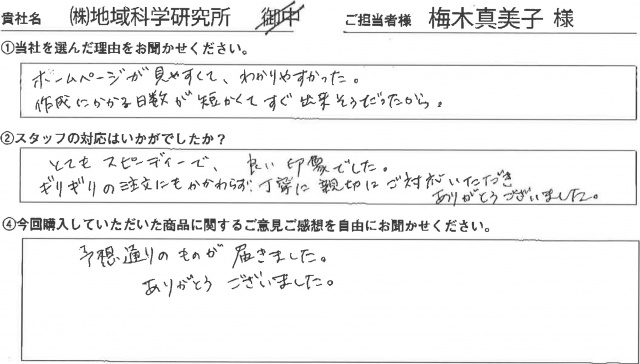 貴社名 ㈱地域科学研究所 御中 ご担当者様 梅木真美子 様
①当社を選んだ理由をお聞かせください。
ホームページが見やすくて、わかりやすかった。
作成にかかる日数が短かくてすぐ出来そうだったから。
②スタッフの対応はいかがでしたか？
とてもスピーディーで、良い印象でした。
ギリギリの注文にもかかわらず丁寧に親切にご対応いただき
ありがとうございました。
④今回購入していただいた商品に関するご意見ご感想を自由にお聞かせください。
予想通りのものが届きました。
ありがとうございました。